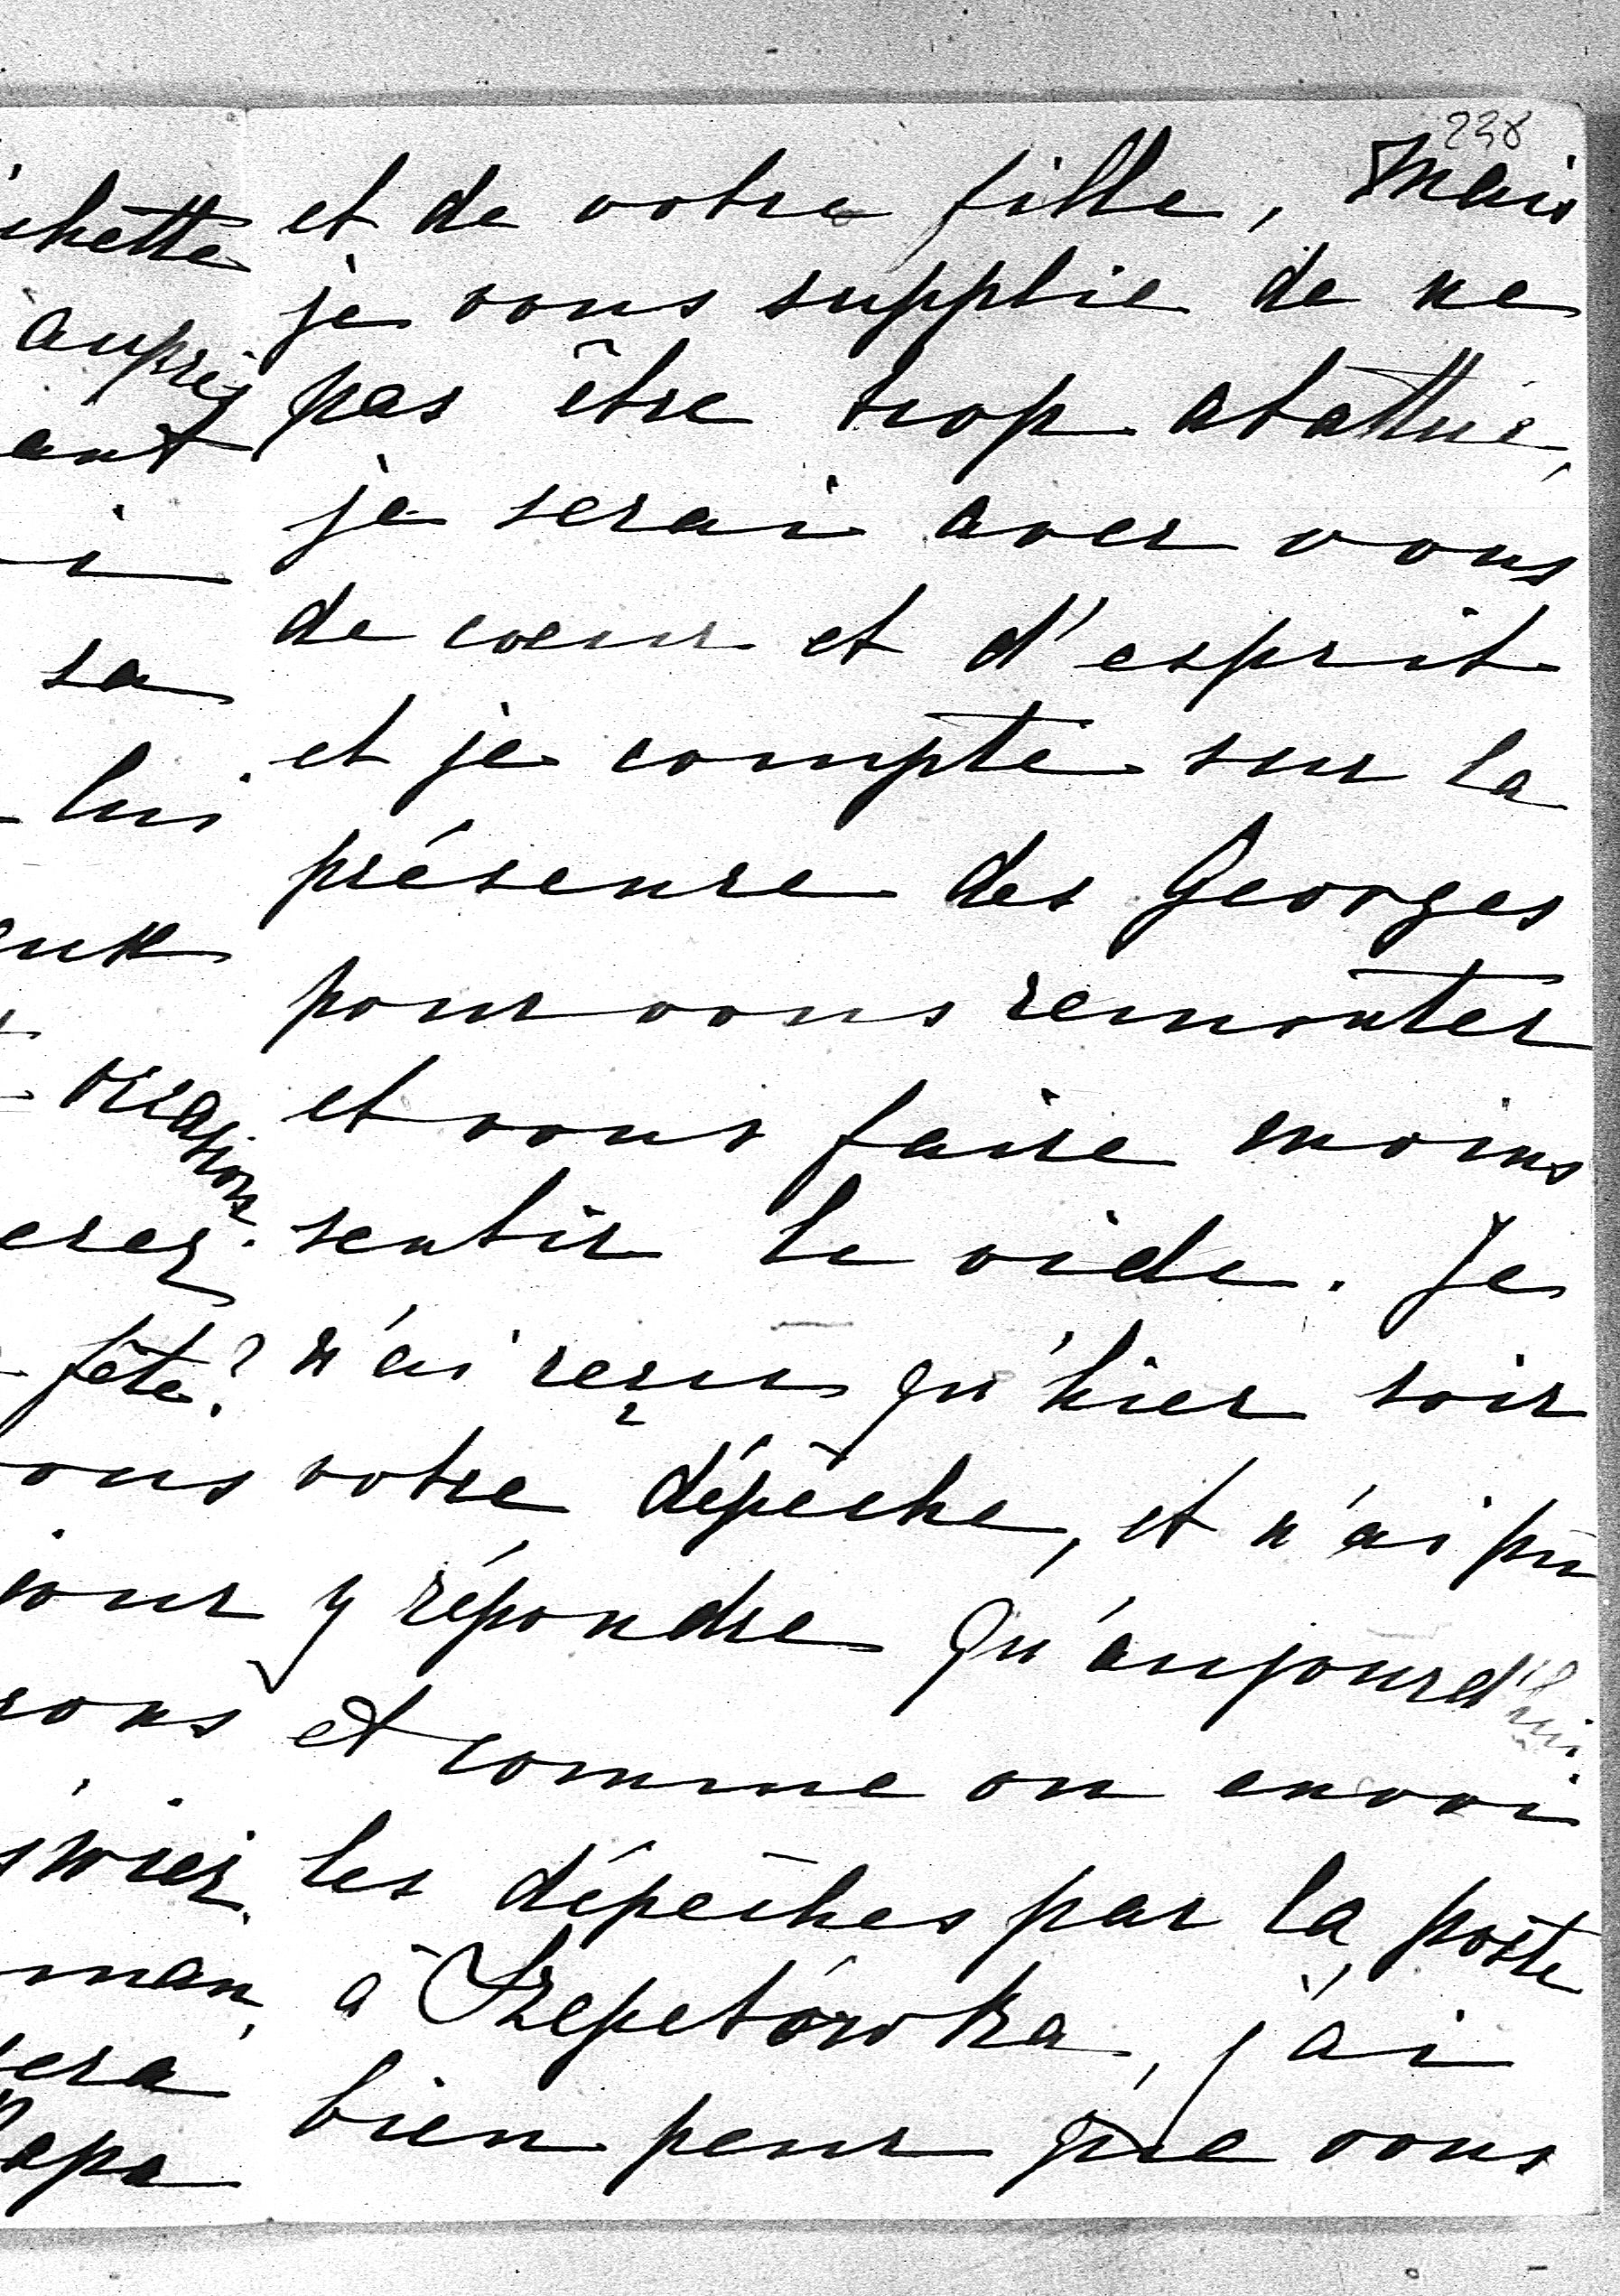 238
et de votre fille, mais
je vous supplie de ne
pas être trop abattue,
je serai avec vous
de coeur et d'esprit
et je compte sur la
présence des Georges
pour vous remonter
et vous faire moins
sentir le vide. Je
n'ai reçu qu'hier soir
votre dépêche, et n'ai pu
y répondre qu'aujourd'hui.
et comme on envoi
les dépêches par la poste
à Szepetówka, j'ai
bien peur que vous
chette
auprès
ant
i
sa
lui
occasion.
erez
fête?
ous
jour
rons
man,
era
Papa